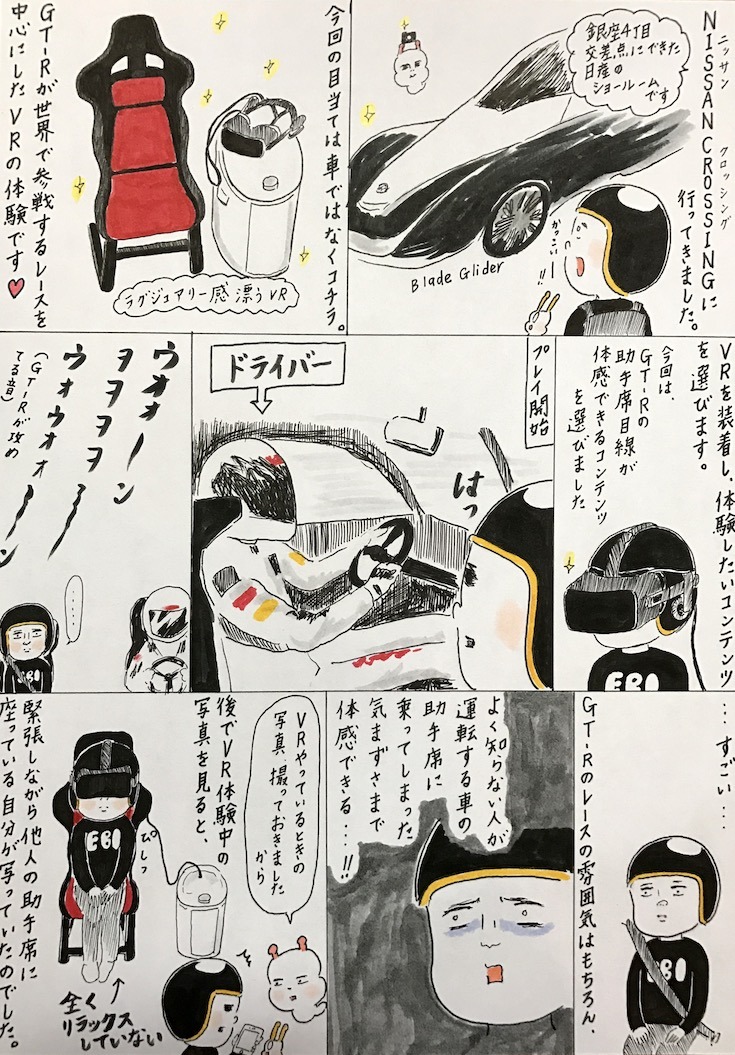 NISSAN CROSSINGに
ニッサン クロッシング
行ってきました。
銀座4丁目
交差点にできた
日産の
ショールーム
です
かっこいー!!
Blade Glider
今回の目当ては車ではなくコチラ。
ラグジュアリー感漂うVR
GT-Rが世界で参戦するレースを
中心にしたVRの体験です♥
VRを装着し、体験したいコンテンツ
を選びます。
今回は、
GT-Rの
助手席目線が
体感できるコンテンツ
を選びました
EBI
プレイ開始
ドライバー
はっ
ウオォーン
ヲヲヲヲ
ウォウォォーーン
(GT-Rが攻め
てる音)
....
EBI
...すごい...
GT-Rのレースの雰囲気はもちろん、
EBI
よく知らない人が
運転する車の
助手席に
乗ってしまった
気まずさまで
体感できる...!!
VRやっているときの
写真、撮っておきました
から
後でVR体験中の
写真を見ると、
EBI
ぴしっ
全く
リラックス
していない
緊張しながら他人の助手席に
座っている自分が写っていたのでした。